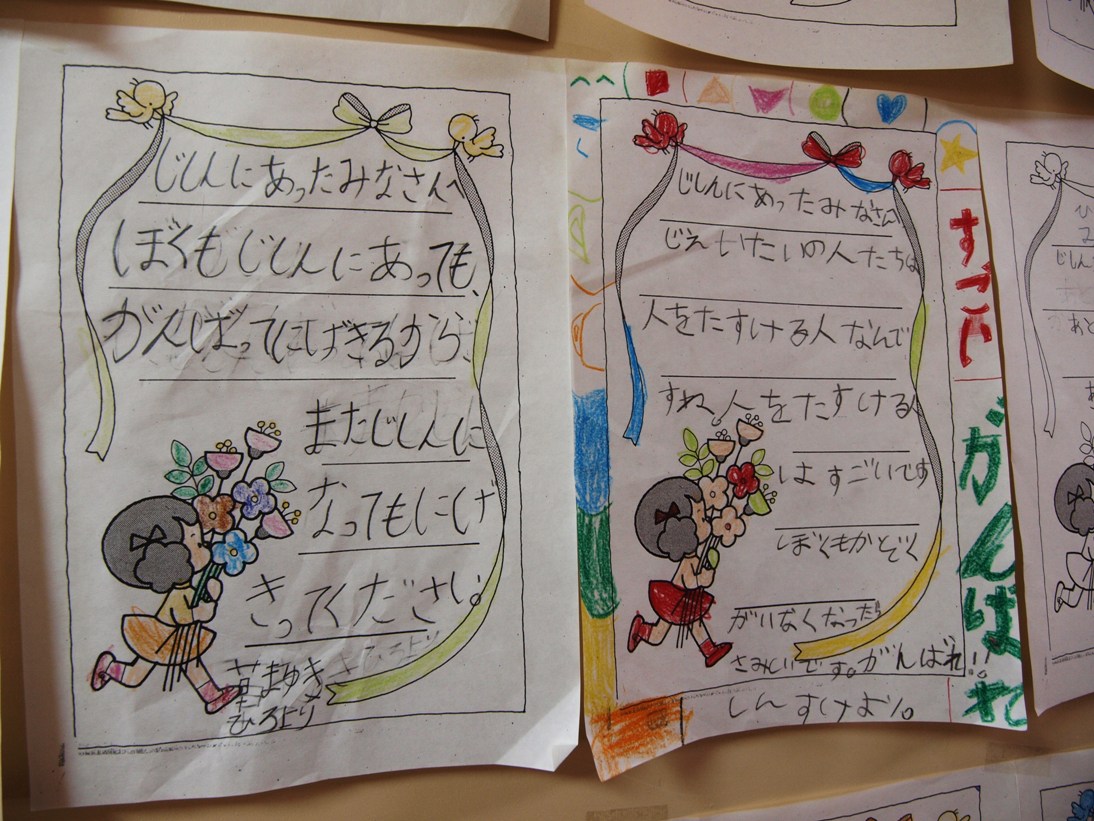 じしんにあったみなさんへ
ぼくもじしんにあっても、
がんばってにげきるから、
またじしんに
なってもにげ
きってください。
まゆき
ひろより
じしんにあったみなさん
じえいたいの人たちは
人をたすける人なんで
すね、人をたすける人
はすごいです
ぼくもかぞく
がいなくなったら
さみしいです。がんばれ!!
しんすけより。
すごい
がんばれ